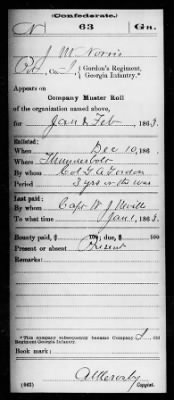 (Confederate.)
N 63 Ga.
J. M. Norris
Pvt, Co. I, Gordon's Regiment,
Georgia Infantry.*
Appears on
Company Muster Roll
of the organization named above,
for Jan & Feb, 1863.
Enlisted:
When Dec 10, 186
Where Thunderbolt
By whom Col G. A. Gordon
Period 3 yrs or the war
Last paid:
By whom Capt W. J. Neville
To what time Jan 1, 1863.
Bounty paid, $ 100; due, $ 100
Present or absent Present
Remarks:
*This company subsequently became Company 63d
Regiment Georgia Infantry.
Book mark:
(642) Copyist.